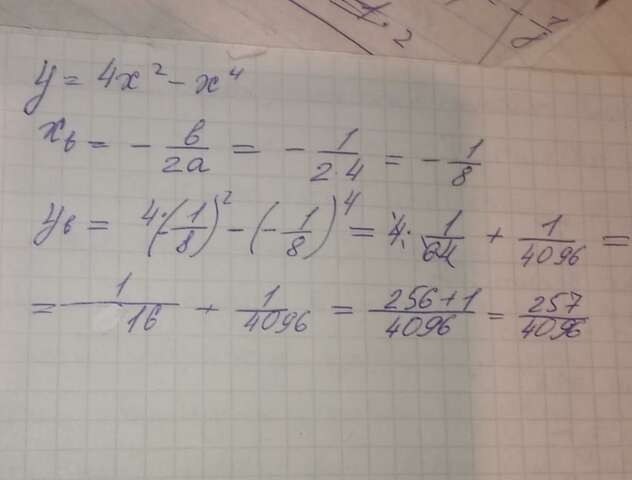 1/2
1/8
y = 4x² - x⁴
xв = - в/2a = - 1/2·4 = - 1/8
yв = 4·(-1/8)² - (-1/8)⁴ = 4· 1/64 + 1/4096 =
= 1/16 + 1/4096 = 256+1/4096 = 257/4096